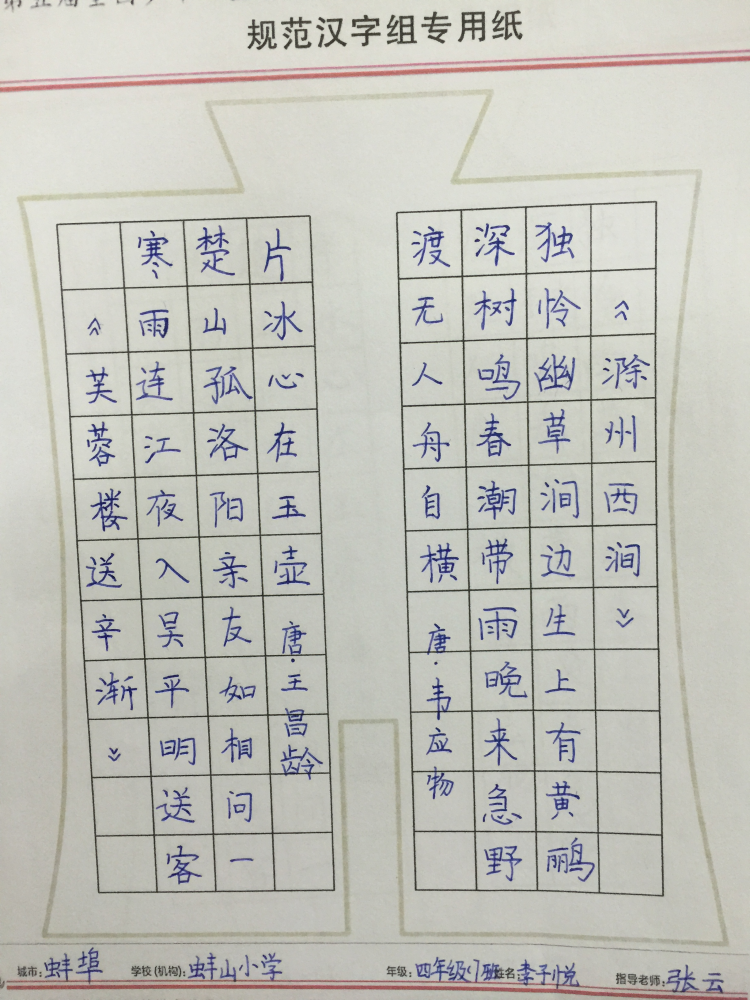 第五届全国
规范汉字组专用纸
《滁州西涧》
独怜幽草涧边生上有黄鹂
深树鸣春潮带雨晚来急野
渡无人舟自横
唐·韦应物
《芙蓉楼送辛渐》
寒雨连江夜入吴平明送客
楚山孤洛阳亲友如相问一
片冰心在玉壶
唐·王昌龄
城市:蚌埠 学校(机构):蚌山小学 年级:四年级(7)班 姓名:李子悦 指导老师:张云